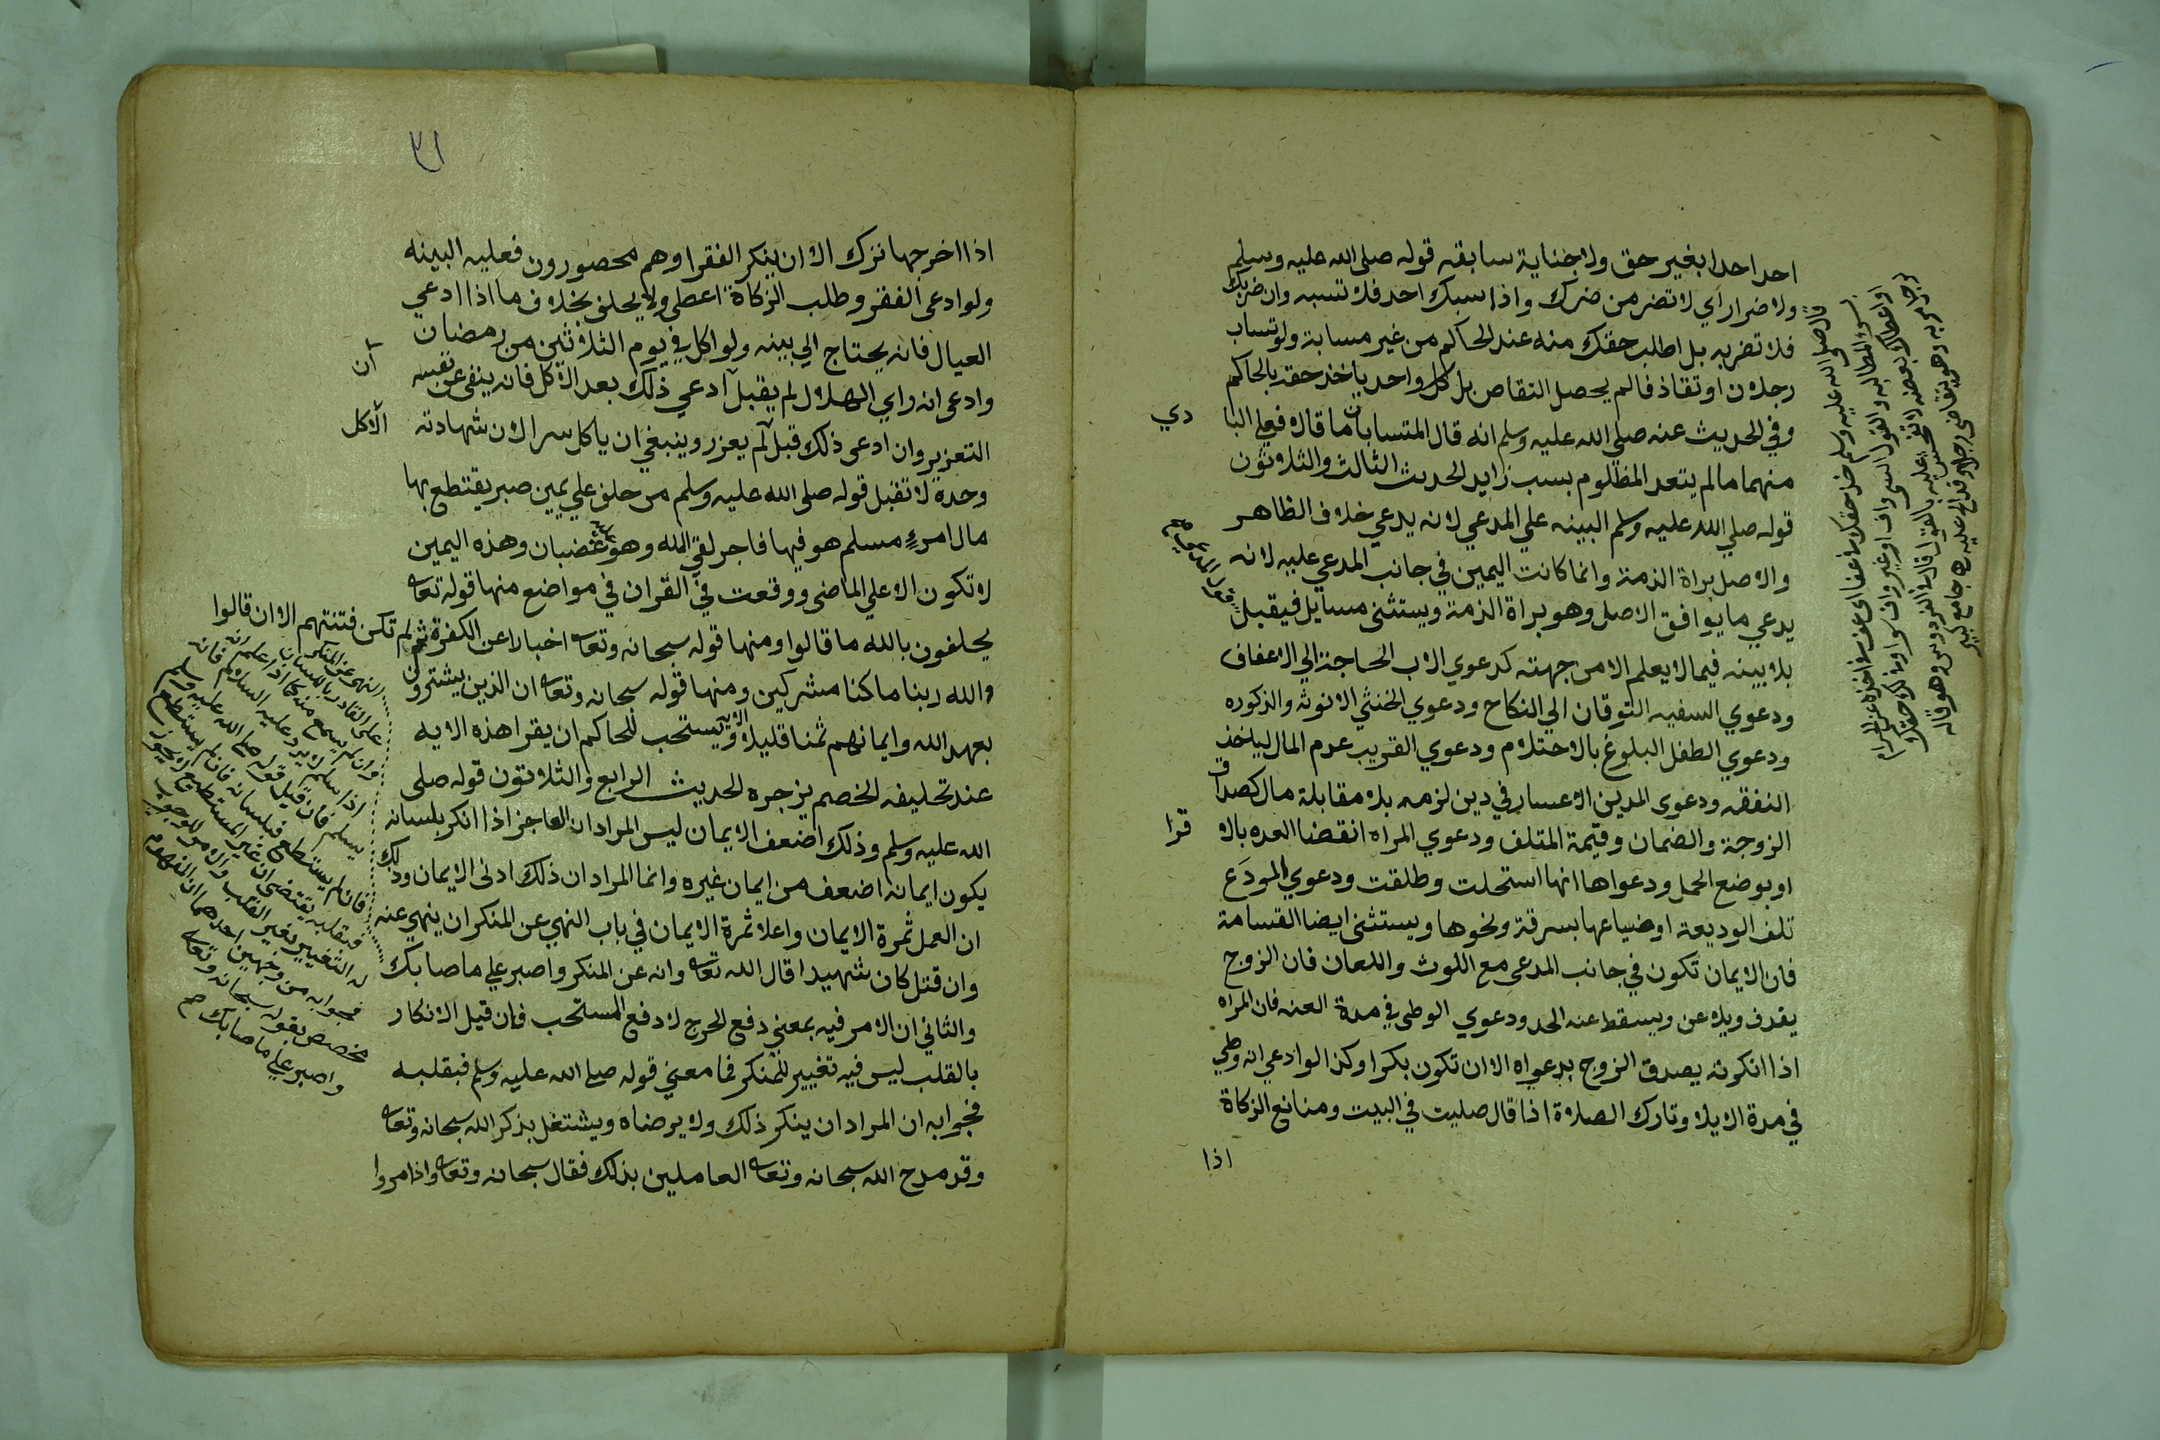 احد احدا بغير حق ولا جناية سابقه قوله صلى الله عليه وسلم
ولا ضرار اي لا تضر من ضرك واذا سبك احد فلا تسبه وان ضربك
فلا تضربه بل اطلب حقك منه عند الحاكم من غير مسابة ولو تساب
رجلان او تقاذفا لم يحصل التقاص بل كل واحد ياخذ حقه بالحاكم
وفي الحديث عنه صلى الله عليه وسلم انه قال المتسابان ما قالا فعلي البا
دي
منهما ما لم يتعد المظلوم بسب زايد الحديث الثالث والثلاثون
قوله صلي الله عليه وسلم البينه علي المدعي لانه يدعي خلاف الظاهر
والاصل براة الذمة وانما كانت اليمين في جانب المدعي عليه لانه
يدعي ما يوافق الاصل وهو براة الذمة ويستثنى مسايل فيقبل
بلا بينه فيما لا يعلم الا من جهته كدعوي الاب الحاجة الي الاعفاف
ودعوي السفيه التوقان الي النكاح ودعوي الخنثي الانوثه والذكوره
ودعوي الطفل البلوغ بالاحتلام ودعوي القريب عدم المال لياخذ
النفقه ودعوى المدين الاعسار في دين لزمه بلا مقابلة مال كصداق
الزوجة والضمان وقيمة المتلف ودعوي المراه انقضا العده بالا
قرا
او بوضع الحمل ودعواها انها استحلت وطلقت ودعوي المودَع
تلف الوديعة او ضياعها بسرقة ونحوها ويستثنى ايضا القسامة
فان الايمان تكون في جانب المدعي مع اللوث واللعان فان الزوج
يقذف ويلاعن ويسقط عنه الحد ودعوي الوطى في مدة العنه فان المراه
اذا انكرته يصدق الزوج بدعواه الا ان تكون بكرا وكذا لو ادعي انه وطي
في مدة الايلا وتارك الصلاة اذا قال صليت في البيت ومانع الزكاة
اذا
قال صلى الله عليه وسلم خذ حقك في عفاف
٣١
اذا اخرجها نزك الا ان ينكر الفقرا وهم محصورون فعليه البينه
ولو ادعى الفقر وطلب الزكاة اعطي ولا يحلف بخلاف ما اذا ادعي
العيال فانه يحتاج الي بينه ولو اكل في يوم الثلاثين من رمضان
وادعى انه راي الهلال لم يقبل ادعي ذلك بعد الاكل فانه ينفى عن نفسه
ان
التعزير وان ادعى ذلك قبل لم يعزر وينبغي ان ياكل سرا لان شهادته
الاكل
وحدة لا تقبل قوله صلى الله عليه وسلم من حلف علي يمين صبر يقتطع بها
مال امرءٍ مسلم هو فيها فاجر لقي الله وهو عليه غضبان وهذه اليمين
لا تكون الا علي الماضى ووقعت في القران في مواضع منها قوله تعالى
يحلفون بالله ما قالوا ومنها قوله سبحانه وتعالى اخبارا عن الكفرة ثم لم تكن فتنتهم الا ان قالوا
والله ربنا ما كنا مشركين ومنها قوله سبحانه وتعالى ان الذين يشترون
بعهد الله وايمانهم ثمنا قليلا الاية ويستحب للحاكم ان يقرا هذه الايه
عند تحليفه الخصم يزجره الحديث الرابع والثلاثون قوله صلى
الله عليه وسلم وذلك اضعف الايمان ليس المراد ان العاجز اذا انكر بلسانه
يكون ايمانه اضعف من ايمان غيره وانما المراد ان ذلك ادنى الايمان وذلك
ان العمل ثمرة الايمان واعلا ثمرة الايمان في باب النهي عن المنكر ان ينهي عنه
وان قتل كان شهيدا قال الله تعالى وانه عن المنكر واصبر علي ما اصابك
والثاني ان الامر فيه بمعني دفع الحرج لا دفع المستحب فان قيل الانكار
بالقلب ليس فيه تغيير للمنكر فما معني قوله صلى الله عليه وسلم فبقلبه
فجوابه ان المراد ان ينكر ذلك ولا يرضاه ويشتغل بذكر الله سبحانه وتعالى
وقد مدح الله سبحانه وتعالى العاملين بذلك فقال سبحانه وتعالى واذا مروا
على القادر باللسان
فان لم يستطع فبلسانه فان لم يستطع
فبقلبه يقتضي ان غير المستطيع لا يجوز
له التغيير بغير القلب والامر للوجوب
فجوابه من وجهين احدهما ان المفهوم
مخصص بقوله سبحانه وتعالى
واصبر علي ما اصابك